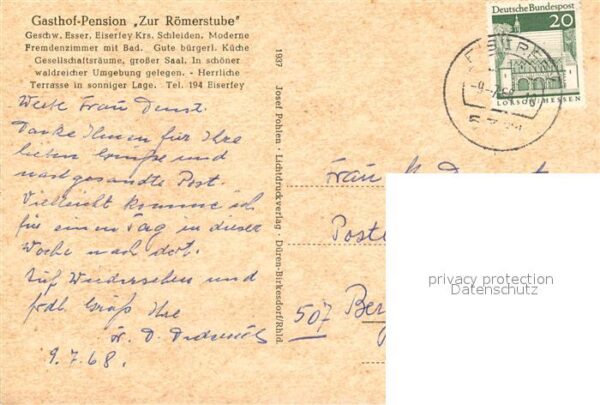 Gasthof-Pension „Zur Römerstube"
Geschw. Esser, Eiserfey Krs. Schleiden. Moderne
Fremdenzimmer mit Bad. Gute bürgerl. Küche
Gesellschaftsräume, großer Saal. In schöner
waldreicher Umgebung gelegen. - Herrliche
Terrasse in sonniger Lage. Tel. 194 Eiserfey
Werte Frau Denst.
Danke Ihnen für Ihre
lieben Grüße und
nachgesandte Post.
Vielleicht komme ich
für einen Tag in dieser
Woche nach dort.
Auf Wiedersehen und
frdl. Grüß Ihre
9.7.68.
1937 Josef Pohlen · Lichtdruckverlag · Düren-Birkesdorf/Rhld.
Deutsche Bundespost
20
LORSCH/HESSEN
Frau
Poste
507 Ber
privacy protection
Datenschutz